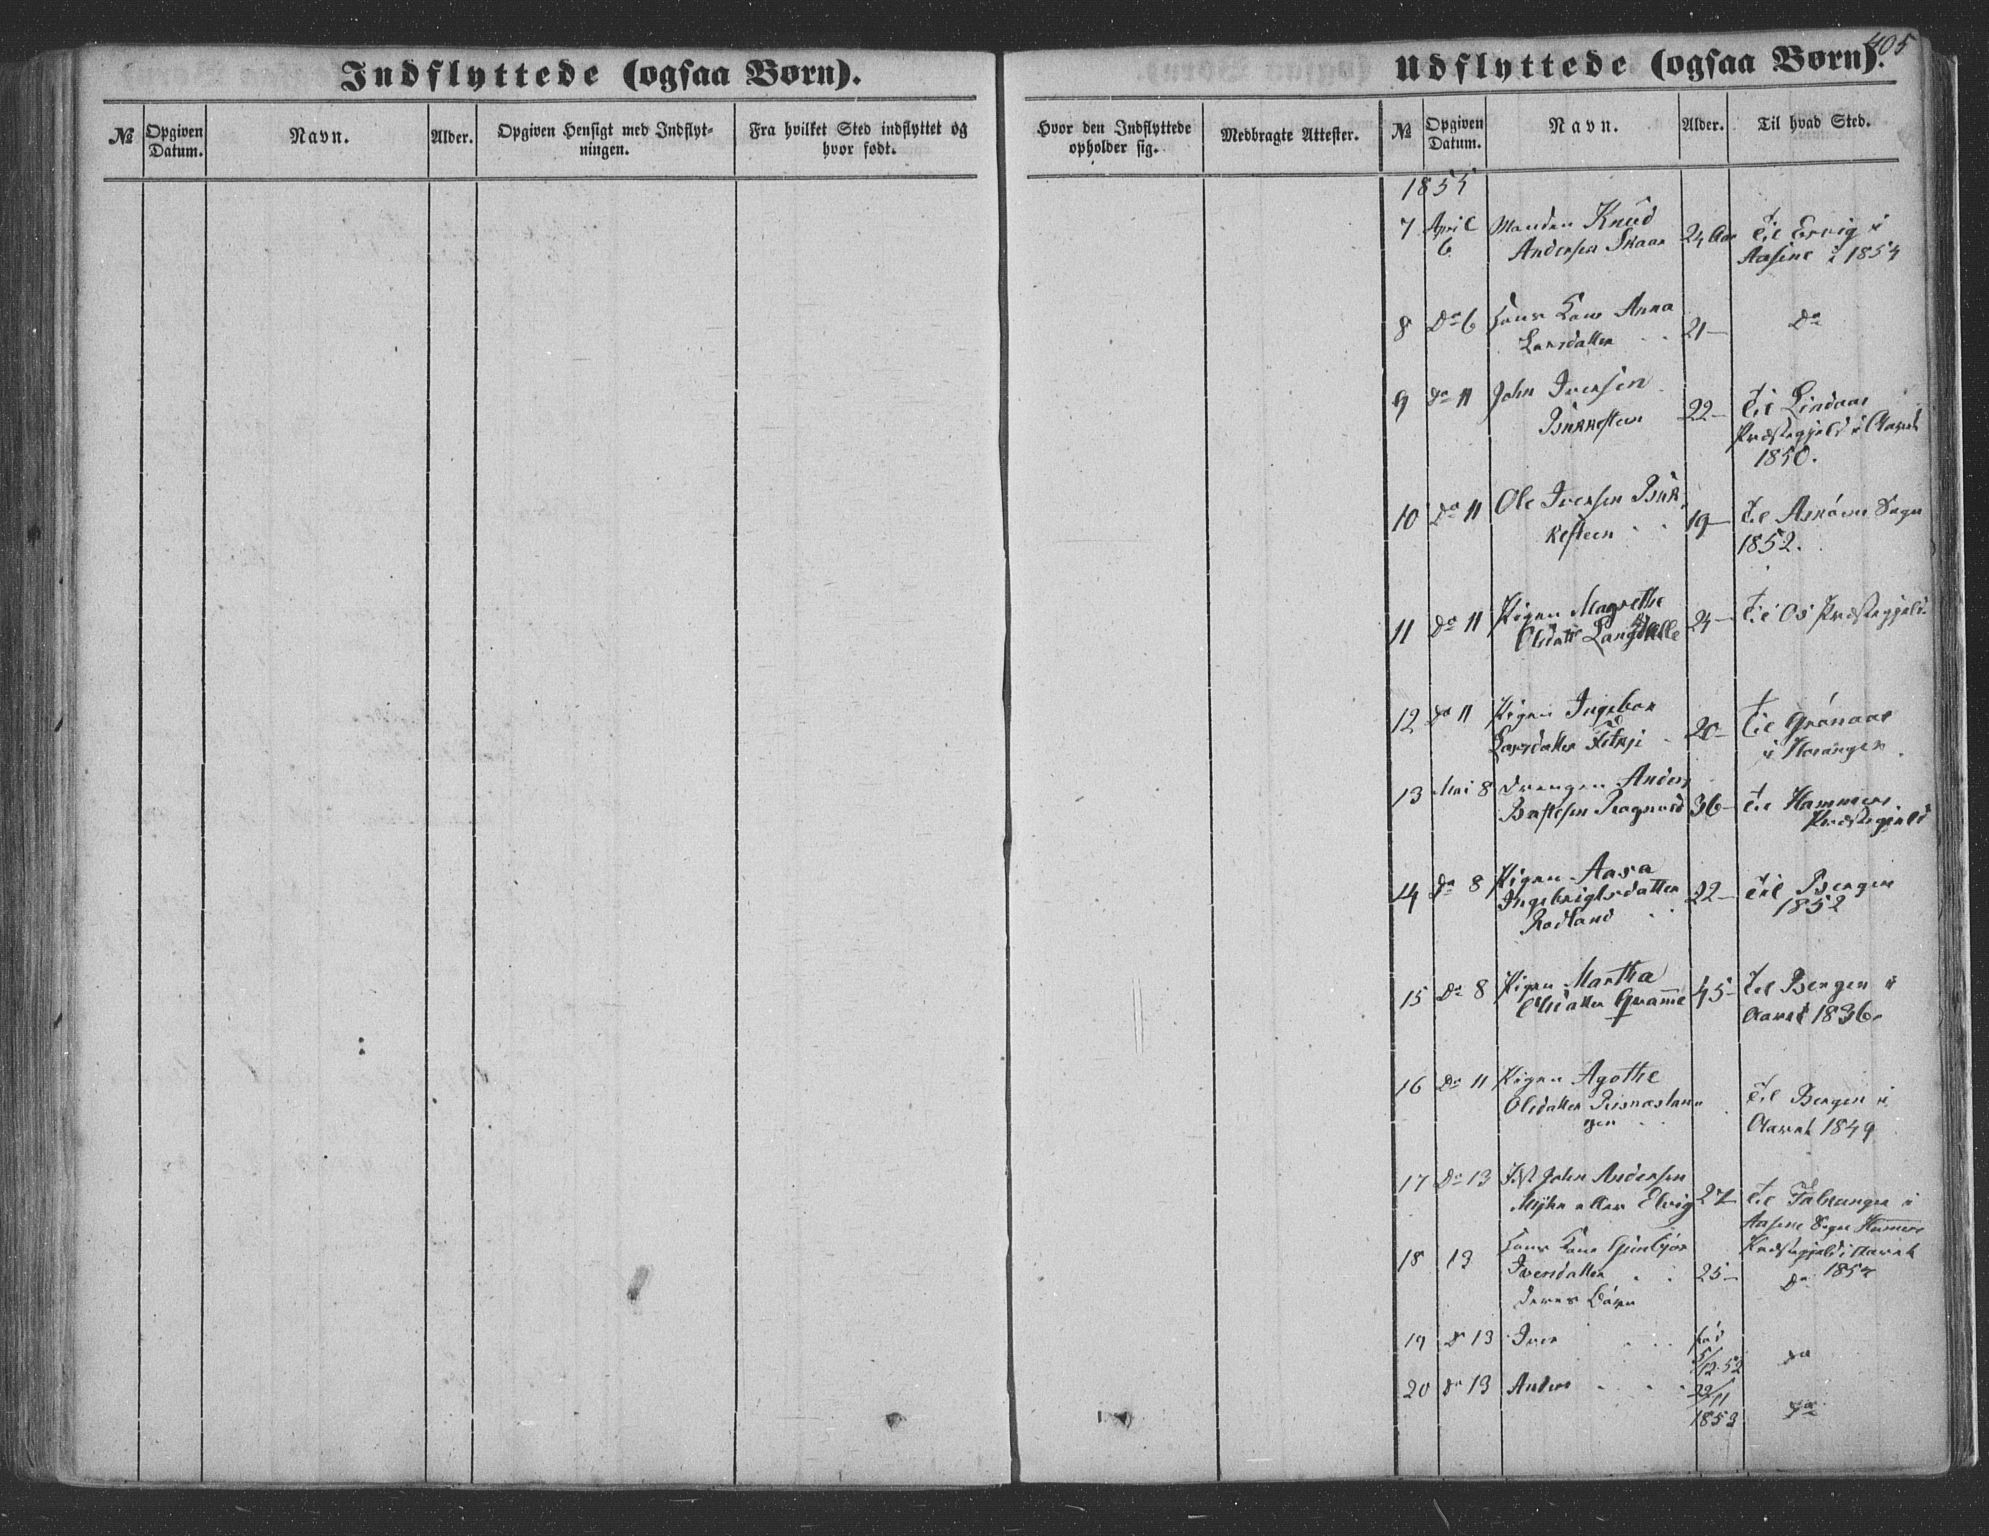 405
Indflyttede (ogsaa Børn).
Udflyttede (ogsaa Børn).
№ Opgiven Datum. Navn. Alder. Opgiven Hensigt med Indflyt-
ningen.
Fra hvilket Sted indflyttet og
hvor født.
Hvor den Indflyttede
opholder sig.
Medbragte Attester.
№ Opgiven Datum. Navn. Alder. Til hvad Sted.
1855
7 April 6 Manden Knud
Andersen Skaar 24 Aar Til Ervig i
Aasene i 1854
8 Do 6 Hans Kone Anna
Larsdatter 21 Do
9 Do 11 John Iversen
Birkesteen 22 Til Lindaas
Præstegjeld i Aaret
1850.
10 Do 11 Ole Iversen Birk
kesteen 19 Til Askøens Sogn
1852.
11 Do 11 Pigen Magrethe
Olsdatter 24 Til Os Præstegjeld
12 Do 11 Pigen Ingebor
Larsdatter 20 Til Grønaas
i Hosanger
13 Mai 8 Drengen Anders
Bastesen 36 Til Hammers
Præstegjeld
14 Do 8 Pigen Aasa
Ingebrigtsdatter
Rødland 22 Til Bergen
1852
15 Do 8 Pigen Martha
Olsdatter Gramme 45 Til Bergen i
Aaret 1836
16 Do 11 Pigen Agothe
Olsdatter Risnæstan
gen Til Bergen i
Aaret 1849
17 Do 13 John Andersen
Myhr eller Elvig 27 Til i
Aasene Sogn Hammers
Præstegjeld i Aaret
1854
18 13 Hans Kone Gunbjør
Iversdatter 25 Do
deres Børn
19 Do 13 Iver fød
5/12 52 Do
20 Do 13 Anders 22/11
1853 Do